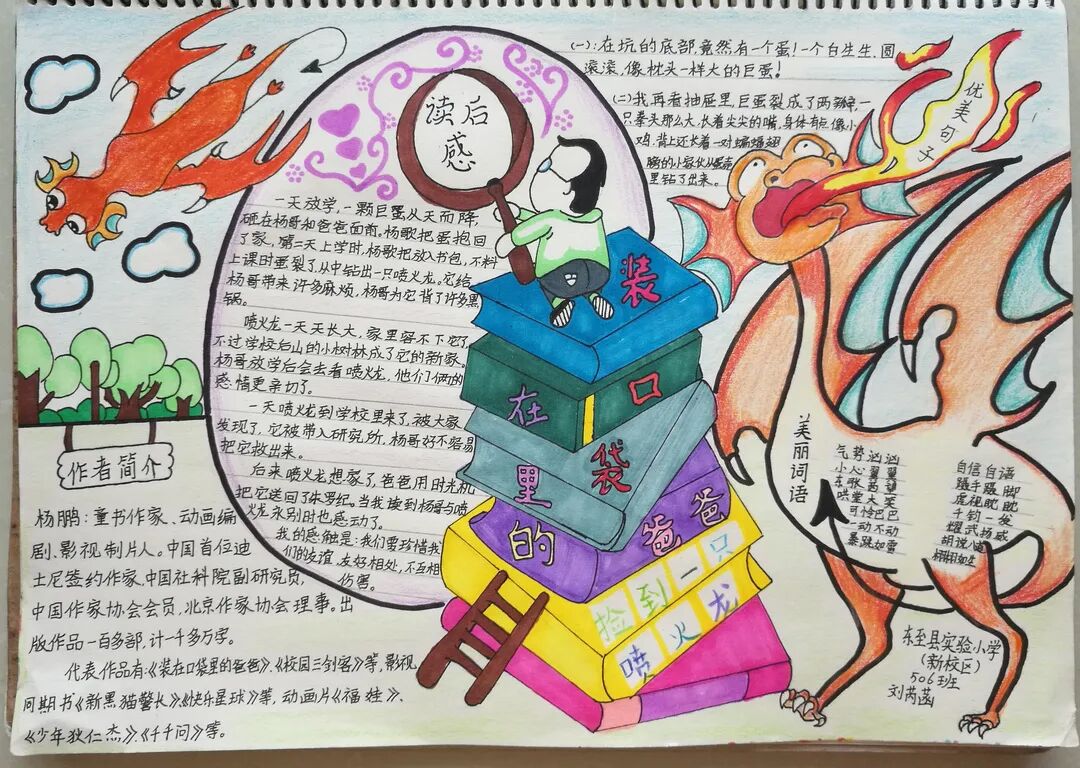 读后感
一天放学，一颗巨蛋从天而降，
砸在杨哥和爸爸面前，杨歌把蛋抱回
了家，第二天上学时，杨歌把放入书包，不料
上课时蛋裂了，从中钻出一只喷火龙。它给
杨哥带来许多麻烦，杨哥为它背了许多黑
锅。
喷火龙一天天长大，家里容不下它了，
不过学校后山的小树林成了它的新家。
杨哥放学后会去看喷火龙，他们俩的
感情更亲切了。
一天喷火龙到学校里来了，被大家
发现了，它被带入研究所，杨哥好不容易
把它救出来。
后来喷火龙想家了，爸爸用时光机
把它送回了朱罗纪，当我读到杨哥与喷
火龙永别时也感动了。
我的感触是：我们要珍惜我
们的友谊，友好相处，不互相
伤害。
(一)：在坑的底部，竟然有一个蛋！一个白生生，圆
滚滚，像枕头一样大的巨蛋！
(二)我再看抽屉里，巨蛋裂成了两瓣，一
只拳头那么大，长着尖尖的嘴，身体有点像小
鸡，背上还长着一对蝙蝠翅
膀的小家伙从蛋壳
里钻了出来。
优美句子
装
在口
里袋
的爸爸
捡到一只
喷火龙
作者简介
杨鹏：童书作家、动画编
剧、影视制片人。中国首位迪
士尼签约作家，中国社科院副研究员，
中国作家协会会员，北京作家协会理事。出
版作品一百多部，计一千多万字。
代表作品有：《装在口袋里的爸爸》、《校园三剑客》等，影视
同期书《新黑猫警长》、《快乐星球》等，动画片《福娃》、
《少年狄仁杰》、《千千问》等。
美丽词语
气势汹汹
小心翼翼
东张西望
哄堂大笑
可怜巴巴
一动不动
暴跳如雷
自信自语
蹑手蹑脚
虎视眈眈
千钧一发
耀武扬威
胡说八道
栩栩如生
东至县实验小学
(新校区)
506班
刘芮菡